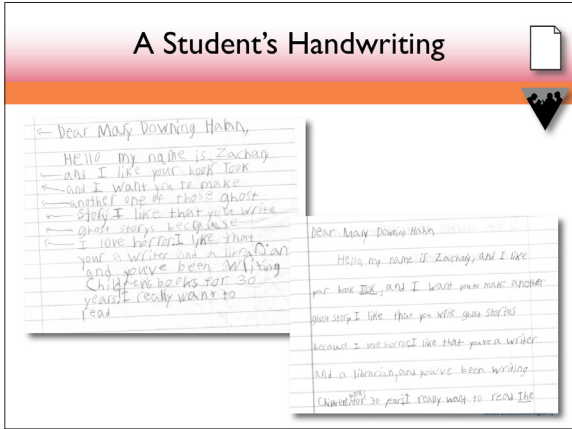 A Student's Handwriting
← Dear Mary Downing Hahn,
Hello my name is Zachary
and I like your book Took
and I want you to make
another one of those ghost
story. I like that you write
ghost storys because
I love horror. I like that
your a writer and a librarian
and you've been writing
Childrens books for 30
years. I really want to
read
Dear Mary Downing Hahn,
Hello, my name is Zachary, and I like
your book Took, and I want you to make another
ghost story. I like that you write ghost stories
because I love horror. I like that you're a writer
and a librarian, and you've been writing
Children books for 30 years. I really want to read The